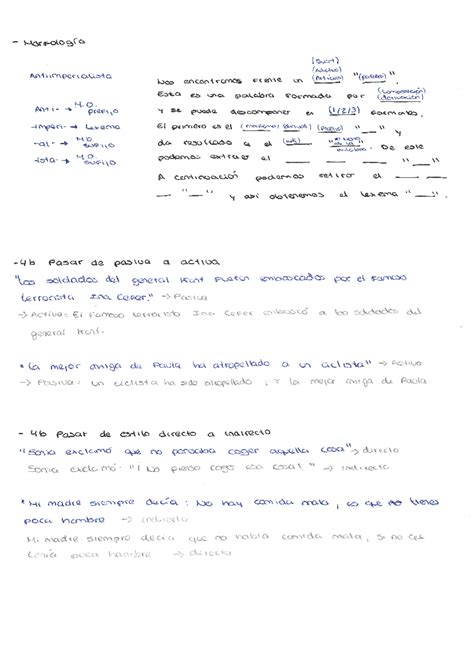 - Morfología
Antiimperialista
Anti- → M.D. prefijo
-imperi- → Lexema
-al- → M.D. sufijo
-ista- → M.D. sufijo
(Sust)
(Adjetivo)
Nos encontramos frente un (Adverbio) "(palabra)".
Esta es una palabra formada por (composición) (derivación)
y se puede descomponer en (1/2/3) formantes.
El primero es el "__" y
da resultado a el (adj) "__". De este
podemos extraer el __ __ "__"
A continuación podemos retirar el __
__ "__" y así obtenemos el lexema "__".
-4b Pasar de pasiva a activa
"Los soldados del general emboscados por el famoso
terrorista Ina " → Pasiva
→ Activa: El famoso terrorista Ina emboscó a los soldados del
general
* La mejor amiga de Paula ha atropellado a un ciclista" → Activa
→ Pasiva: un ciclista ha sido atropellado la mejor amiga de Paula
- 4b Pasar de estilo directo a indirecto
"Sonia exclamó que no pensaba coger aquella cosa" → directo
Sonia exclamó: "! No pienso coger esa cosa! " → indirecto
* Mi madre siempre decía: No hay comida mala, es que no tienes
poca hambre → indirecto
Mi madre siempre decía que no había comida mala, si no que
tenía poca hambre → directo